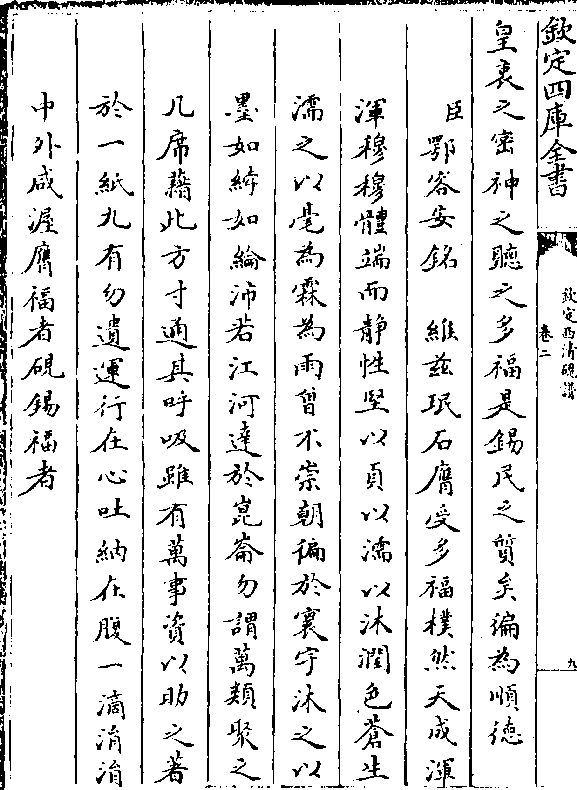 欽定四庫全書
欽定西清硯譜
卷二
九
皇衷之密神之聽之多福是錫民之質矣徧為順德
臣鄂容安銘　維兹珉石膺受多福樸然天成渾
渾穆穆體端而静性堅以貞以濡以沐潤色蒼生
濡之以毫為霖為雨曾不崇朝徧於寰宇沐之以
墨如綍如綸沛若江河達於崑崙勿謂萬類聚之
几席藉此方寸通其呼吸雖有萬事資以助之著
於一紙九有勿遺運行在心吐納在腹一滴涓涓
中外咸渥膺福者硯錫福者